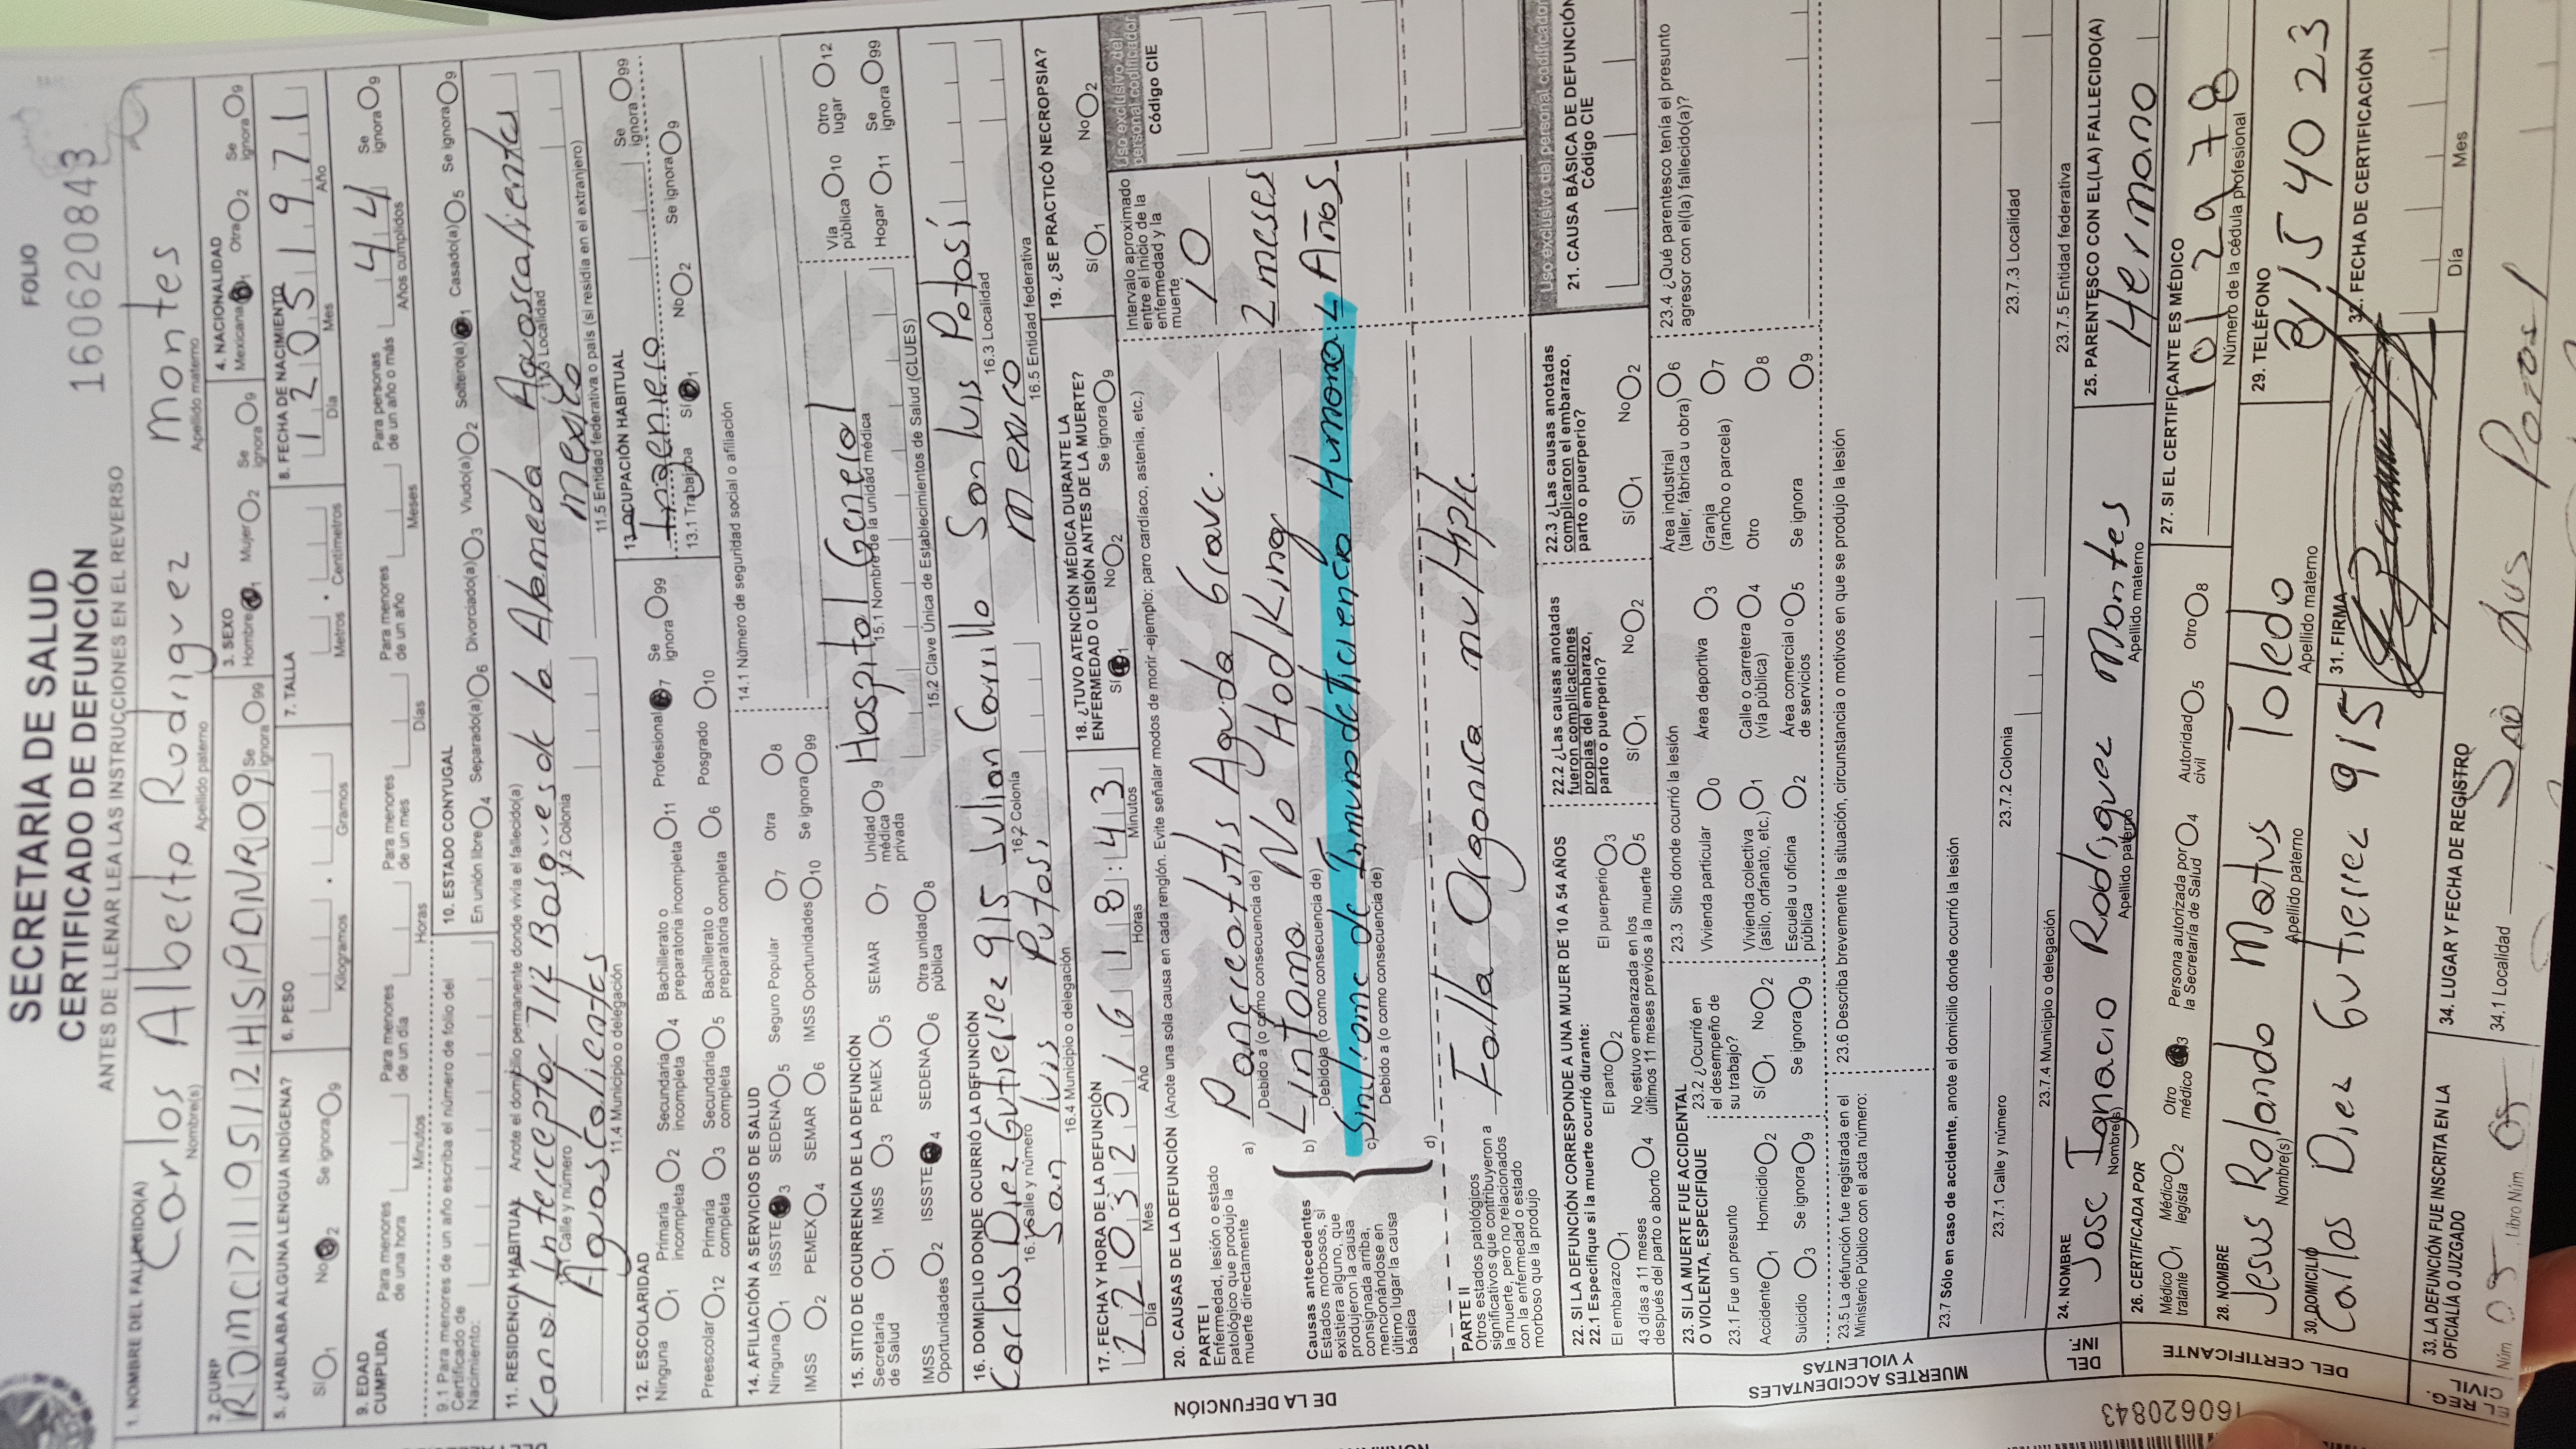 SECRETARÍA DE SALUD
CERTIFICADO DE DEFUNCIÓN
FOLIO
160620843
ANTES DE LLENAR LEA LAS INSTRUCCIONES EN EL REVERSO
1. NOMBRE DEL FALLECIDO(A)
Carlos Alberto Rodriguez Montes
Nombre(s) Apellido paterno Apellido materno
2. CURP
3. SEXO
Hombre 1 Mujer 2 Se ignora 9
4. NACIONALIDAD
Mexicana 1 Otra 2 Se ignora 9
5. ¿HABLABA ALGUNA LENGUA INDÍGENA?
SÍ 1 No 2 Se ignora 9
6. PESO
Kilogramos Gramos Se ignora 99
7. TALLA
Metros Centímetros
8. FECHA DE NACIMIENTO
12 05 1971
Día Mes Año
9. EDAD CUMPLIDA
Para menores de una hora
Minutos
Para menores de un día
Horas
Para menores de un mes
Días
Para menores de un año
Meses
Para personas de un año o más
44
Años cumplidos
Se ignora 9
9.1 Para menores de un año escriba el número de folio del Certificado de Nacimiento:
10. ESTADO CONYUGAL
En unión libre 4 Separado(a) 6 Divorciado(a) 3 Viudo(a) 2 Soltero(a) 1 Casado(a) 5 Se ignora 9
11. RESIDENCIA HABITUAL Anote el domicilio permanente donde vivía el fallecido(a)
Canal Interceptor 712 Bosques de la Alameda Aguascalientes
Calle y número 11.2 Colonia 11.3 Localidad
Aguascalientes Mexico
11.4 Municipio o delegación 11.5 Entidad federativa o país (si residía en el extranjero)
12. ESCOLARIDAD
Ninguna 1 Primaria incompleta 2 Secundaria incompleta 4 Bachillerato o preparatoria incompleta 11 Profesional 7 Se ignora 99
Preescolar 12 Primaria completa 3 Secundaria completa 5 Bachillerato o preparatoria completa 6 Posgrado 10
13. OCUPACIÓN HABITUAL
Ingeniero
Se ignora 99
13.1 Trabajaba SÍ 1 No 2 Se ignora 9
14. AFILIACIÓN A SERVICIOS DE SALUD
Ninguna 1 ISSSTE 3 SEDENA 5 Seguro Popular 7 Otra 8
IMSS 2 PEMEX 4 SEMAR 6 IMSS Oportunidades 10 Se ignora 99
14.1 Número de seguridad social o afiliación
15. SITIO DE OCURRENCIA DE LA DEFUNCIÓN
Secretaría de Salud 1 IMSS 3 PEMEX 5 SEMAR 7 Unidad médica privada 9
IMSS Oportunidades 2 ISSSTE 4 SEDENA 6 Otra unidad pública 8
Hospital General
15.1 Nombre de la unidad médica
15.2 Clave Única de Establecimientos de Salud (CLUES)
Vía pública 10 Otro lugar 12
Hogar 11 Se ignora 99
16. DOMICILIO DONDE OCURRIÓ LA DEFUNCIÓN
Carlos Diez Gutierrez 915 Julian Carrillo San Luis Potosí
16.1 Calle y número 16.2 Colonia 16.3 Localidad
San Luis Potosi Mexico
16.4 Municipio o delegación 16.5 Entidad federativa
17. FECHA Y HORA DE LA DEFUNCIÓN
22 03 2016 18:43
Día Mes Año Horas Minutos
18. ¿TUVO ATENCIÓN MÉDICA DURANTE LA ENFERMEDAD O LESIÓN ANTES DE LA MUERTE?
SÍ 1 No 2 Se ignora 9
19. ¿SE PRACTICÓ NECROPSIA?
SÍ 1 No 2
20. CAUSAS DE LA DEFUNCIÓN (Anote una sola causa en cada renglón. Evite señalar modos de morir -ejemplo: paro cardíaco, astenia, etc.)
Intervalo aproximado entre el inicio de la enfermedad y la muerte
Uso exclusivo del personal codificador
Código CIE
PARTE I
Enfermedad, lesión o estado patológico que produjo la muerte directamente
a) Pancreatitis Aguda Grave. 10
Debido a (o como consecuencia de)
Causas antecedentes
Estados morbosos, si existiera alguno, que produjeron la causa consignada arriba, mencionándose en último lugar la causa básica
b) Linfoma No Hodking 2 meses
Debido a (o como consecuencia de)
c) Sindrome de Inmunodeficiencia Humana 4 Años
Debido a (o como consecuencia de)
d)
PARTE II
Otros estados patológicos significativos que contribuyeron a la muerte, pero no relacionados con la enfermedad o estado morboso que la produjo
Falla Organica multiple.
DE LA DEFUNCIÓN
Uso exclusivo del personal codificador
21. CAUSA BÁSICA DE DEFUNCIÓN
Código CIE
22. SI LA DEFUNCIÓN CORRESPONDE A UNA MUJER DE 10 A 54 AÑOS
22.1 Especifique si la muerte ocurrió durante:
El embarazo 1 El parto 2 El puerperio 3
43 días a 11 meses después del parto o aborto 4 No estuvo embarazada en los últimos 11 meses previos a la muerte 5
22.2 ¿Las causas anotadas fueron complicaciones propias del embarazo, parto o puerperio?
SÍ 1 No 2
22.3 ¿Las causas anotadas complicaron el embarazo, parto o puerperio?
SÍ 1 No 2
23. SI LA MUERTE FUE ACCIDENTAL O VIOLENTA, ESPECIFIQUE
23.1 Fue un presunto
Accidente 1 Homicidio 2
Suicidio 3 Se ignora 9
23.2 ¿Ocurrió en el desempeño de su trabajo?
SÍ 1 No 2
Se ignora 9
23.3 Sitio donde ocurrió la lesión
Vivienda particular 0 Área deportiva 3 Área industrial (taller, fábrica u obra) 6
Vivienda colectiva (asilo, orfanato, etc.) 1 Calle o carretera (vía pública) 4 Granja (rancho o parcela) 7
Escuela u oficina pública 2 Área comercial o de servicios 5 Otro 8
Se ignora 9
23.4 ¿Qué parentesco tenía el presunto agresor con el(la) fallecido(a)?
23.5 La defunción fue registrada en el Ministerio Público con el acta número:
23.6 Describa brevemente la situación, circunstancia o motivos en que se produjo la lesión
23.7 Sólo en caso de accidente, anote el domicilio donde ocurrió la lesión
23.7.1 Calle y número 23.7.2 Colonia 23.7.3 Localidad
23.7.4 Municipio o delegación 23.7.5 Entidad federativa
MUERTES ACCIDENTALES Y VIOLENTAS
DEL INF.
24. NOMBRE
Jose Ignacio Rodriguez Montes
Nombre(s) Apellido paterno Apellido materno
25. PARENTESCO CON EL(LA) FALLECIDO(A)
Hermano
26. CERTIFICADA POR
Médico tratante 1 Médico legista 2 Otro médico 3 Persona autorizada por la Secretaría de Salud 4 Autoridad civil 5 Otro 8
27. SI EL CERTIFICANTE ES MÉDICO
Número de la cédula profesional
28. NOMBRE
Jesus Rolando Matus Toledo
Nombre(s) Apellido paterno Apellido materno
29. TELÉFONO
8154023
30. DOMICILIO
Carlos Diez Gutierrez 915
31. FIRMA
32. FECHA DE CERTIFICACIÓN
Día Mes
DEL CERTIFICANTE
33. LA DEFUNCIÓN FUE INSCRITA EN LA OFICIALÍA O JUZGADO
Núm. Libro Núm.
34. LUGAR Y FECHA DE REGISTRO
34.1 Localidad
160620843